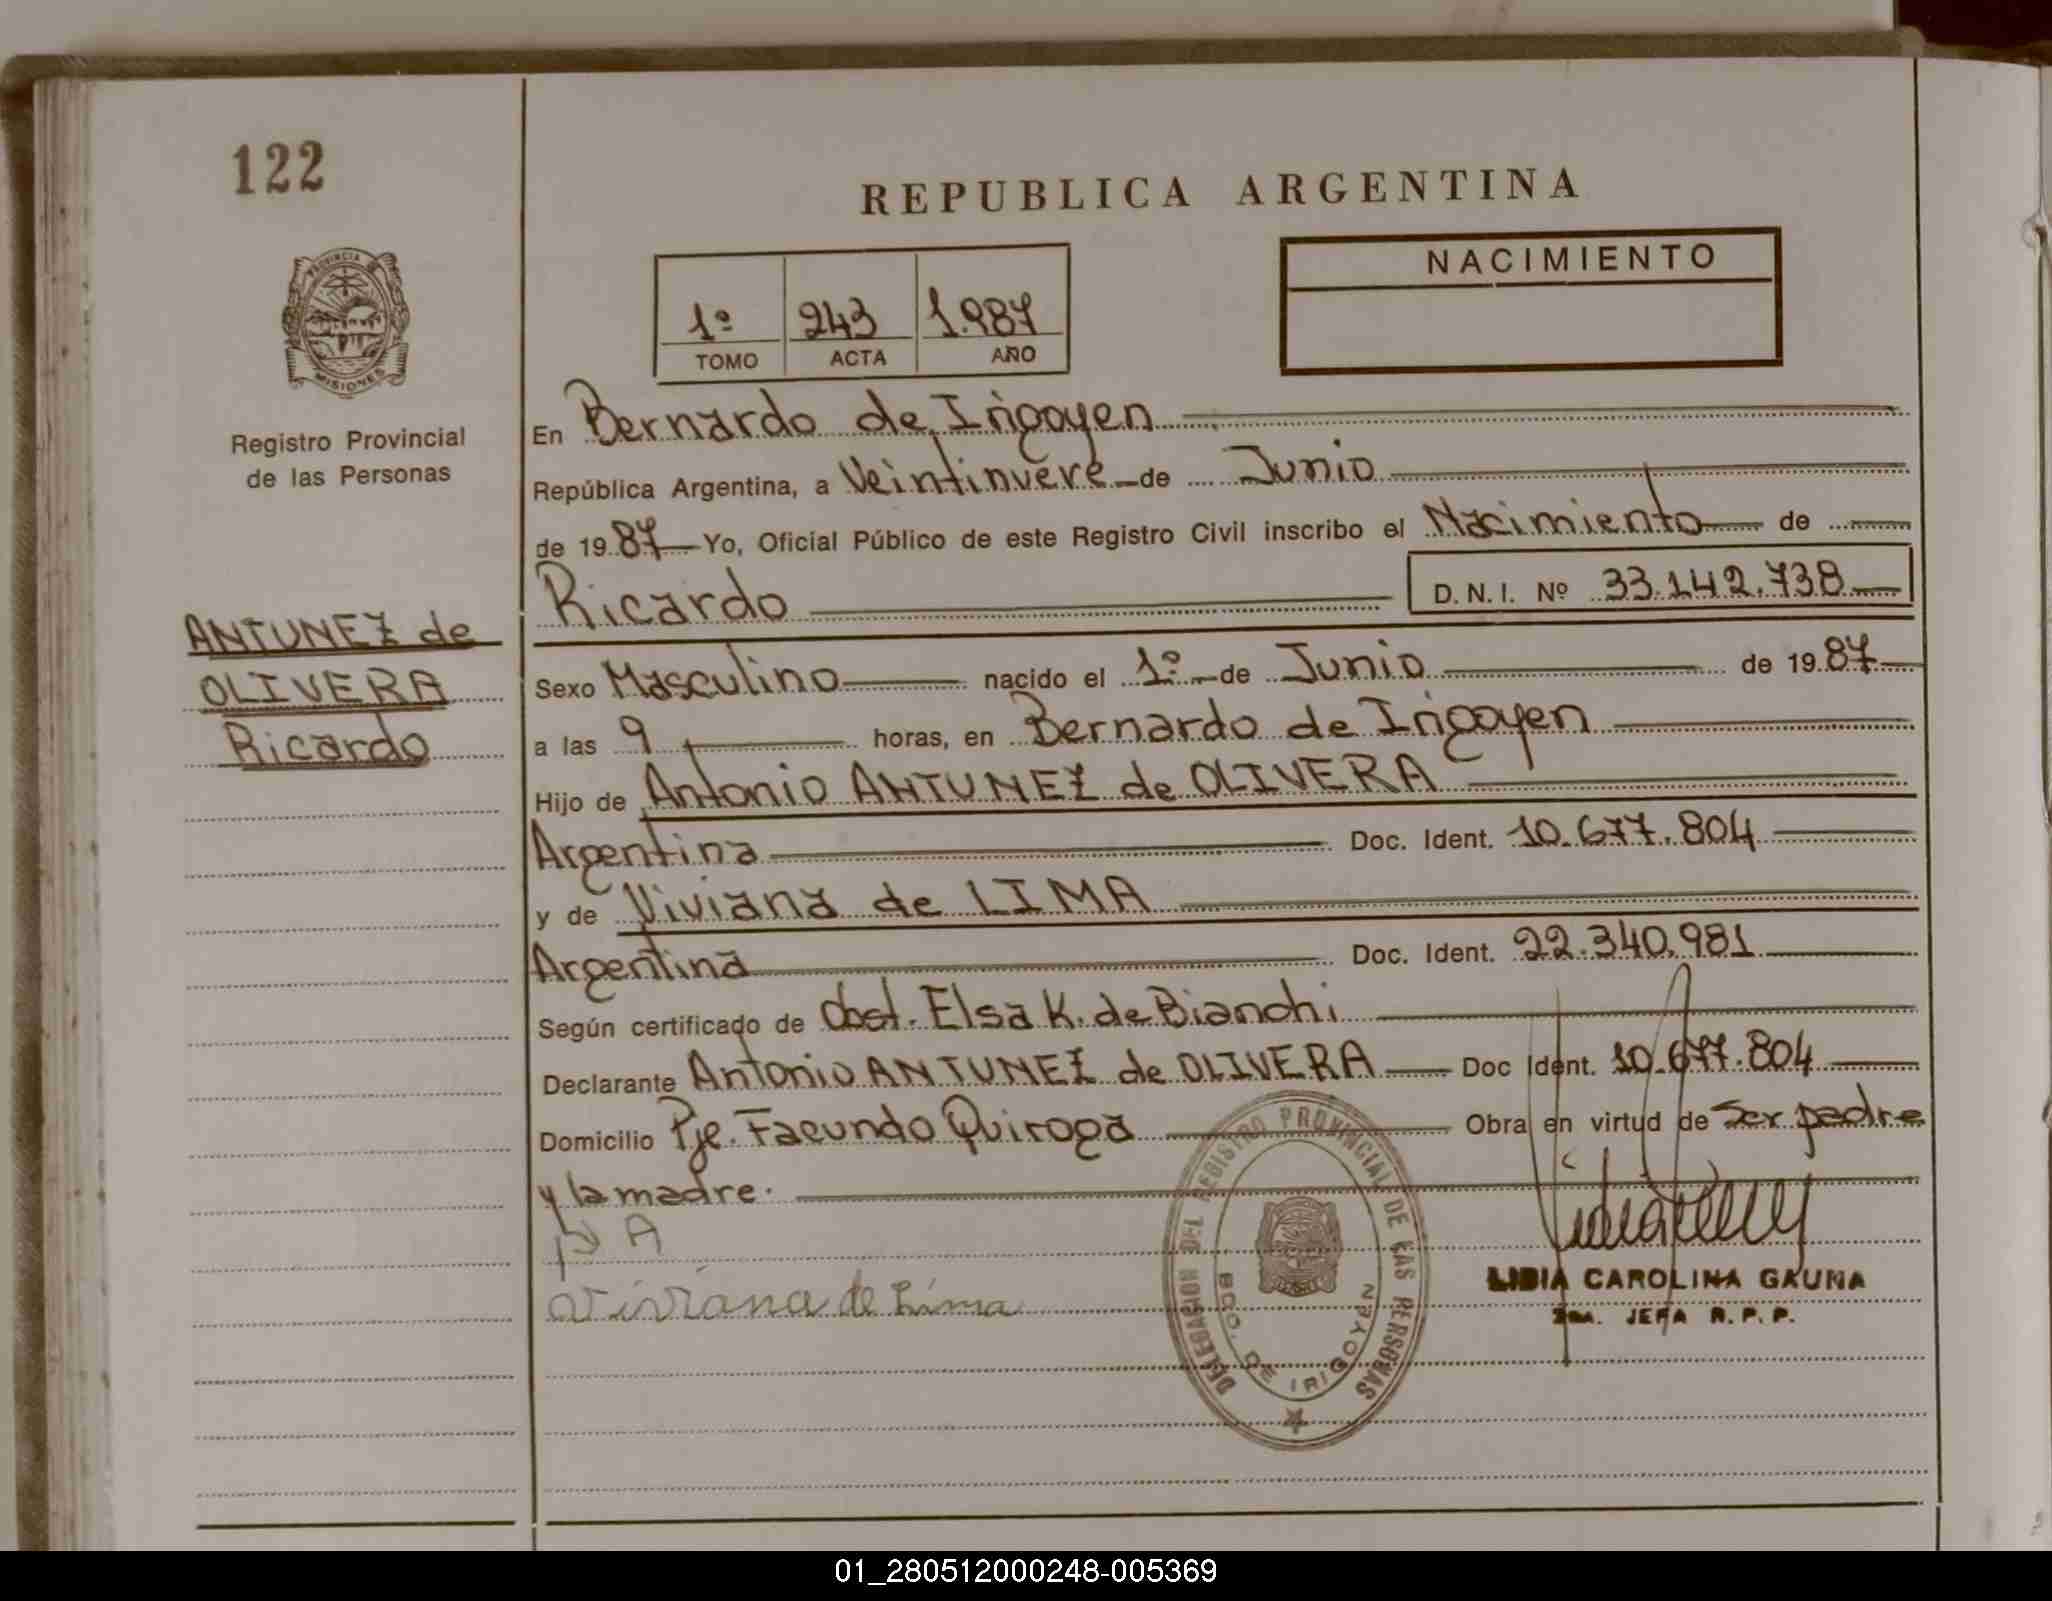 122
REPUBLICA ARGENTINA
NACIMIENTO
1º 243 1.987
TOMO ACTA AÑO
PROVINCIA DE
MISIONES
Registro Provincial
de las Personas
ANTUNEZ de
OLIVERA
Ricardo
En Bernardo de Irigoyen
República Argentina, a Veintinueve de Junio
de 19 87 Yo, Oficial Público de este Registro Civil inscribo el Nacimiento de
Ricardo D.N.I. Nº 33.142.738
Sexo Masculino nacido el 1º de Junio de 19 87
a las 9 horas, en Bernardo de Irigoyen
Hijo de Antonio ANTUNEZ de OLIVERA
Argentina Doc. Ident. 10.677.804
y de Viviana de LIMA
Argentina Doc. Ident. 22.340.981
Según certificado de Obst. Elsa K. de Bianchi
Declarante Antonio ANTUNEZ de OLIVERA Doc Ident. 10.677.804
Domicilio Pje. Facundo Quiroga Obra en virtud de Ser padre
y la madre.
A
Viviana de Lima
DELEGACION DEL REGISTRO PROVINCIAL DE LAS PERSONAS
BDO. DE IRIGOYEN
LIDIA CAROLINA GAUNA
JEFA R.P.P.
01_280512000248-005369